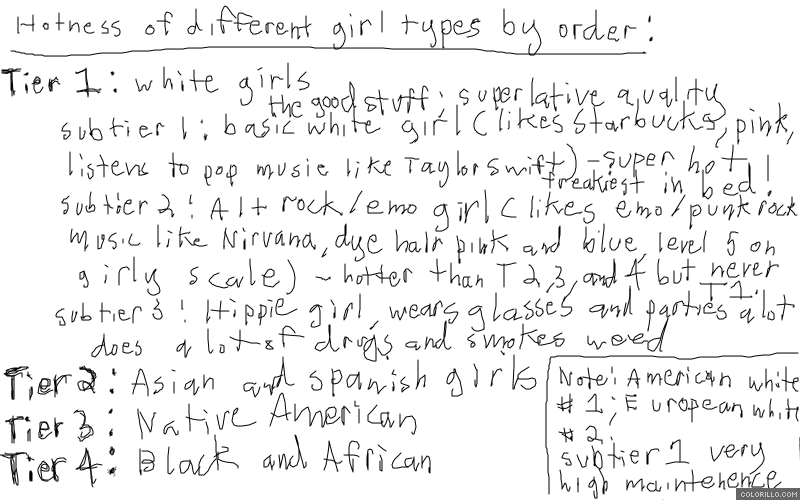 Hotness of different girl types by order:
Tier 1: white girls
the good stuff; superlative quality
subtier 1: basic white girl (likes Starbucks, pink,
listens to pop music like Taylor Swift) - super hot
freakiest in bed!
subtier 2: Alt rock/emo girl (likes emo/punk rock
music like Nirvana, dye hair pink and blue, level 5 on
girly scale) ~ hotter than T2,3, and 4 but never
T1.
subtier 3: Hippie girl, wears glasses and parties a lot
does a lot of drugs and smokes weed
Tier 2: Asian and spanish girls
Tier 3: Native American
Tier 4: Black and African
Note: American white
#1; European white
#2;
subtier 1 very
high maintenence
COLORILLO.COM